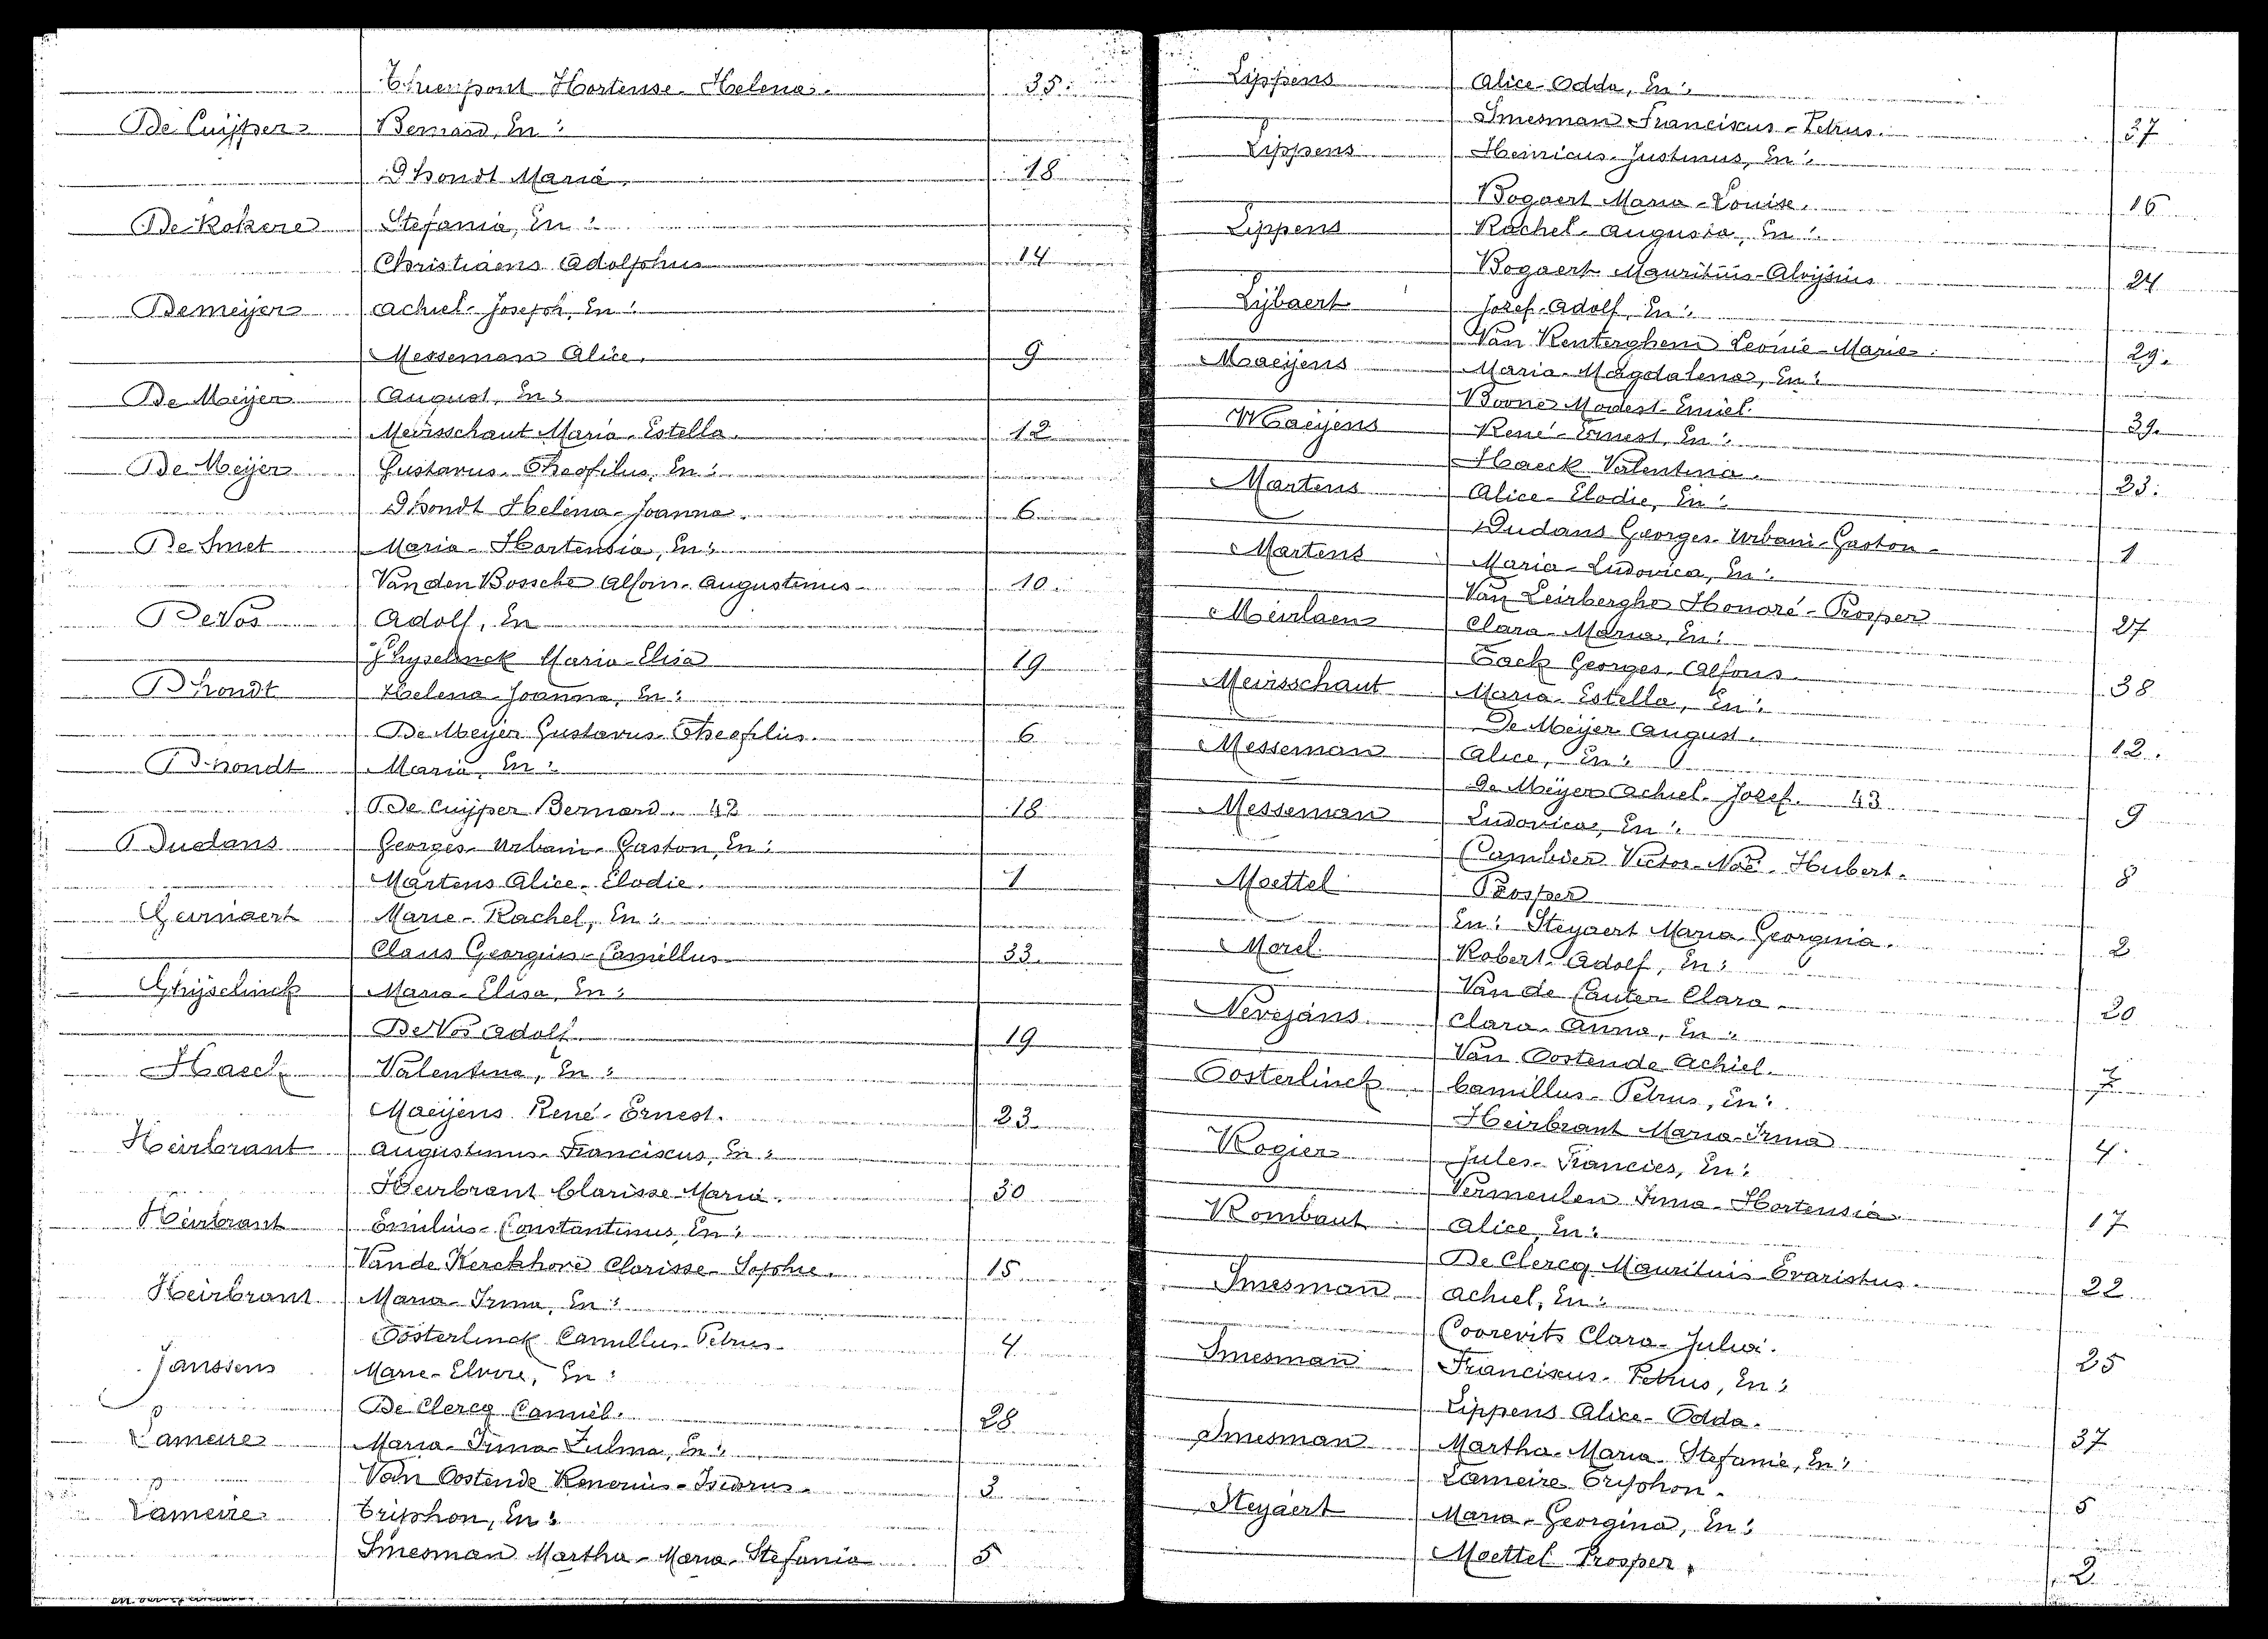 Thienpont Hortense-Helena. 35.
De Cuijper Bernard, En:
Dhondt Maria. 18
De Kokere Stefania, En:
Christiaens Adolphus 14
Demeijer Achiel-Joseph, En:
Messeman Alice. 9
De Meijer August, En:
Meirsschaut Maria-Estella. 12
De Meijer Gustavus-Theofilus, En:
Dhondt Helena-Joanna. 6
De Smet Maria-Hortensia, En:
Van den Bossche Alfons-Augustinus 10.
De Vos Adolf, En
Ghyselinck Maria-Elisa 19
Dhondt Helena-Joanna, En:
De Meijer Gustavus-Theofilus. 6
Dhondt Maria, En:
De Cuijper Bernard. 42 18
Dudans Georges-Urbain-Gaston, En:
Martens Alice-Elodie. 1
Gernaert Marie-Rachel, En:
Claus Georgius-Camillus 33.
Ghijselinck Maria-Elisa, En:
De Vos Adolf 19
Haeck Valentina, En:
Maeijens René-Ernest. 23
Heirbrant Augustinus-Franciscus, En:
Heirbrant Clarisse-Maria. 30
Heirbrant Emilius-Constantinus, En:
Van de Kerckhove Clarisse-Sophie. 15
Heirbrant Maria-Irma, En:
Oosterlinck Camillus-Petrus 4
Janssens Marie-Elvire, En:
De Clercq Camiel. 28
Lameire Maria-Irma-Zulma, En:
Van Oostende Isidorus. 3
Lameire Triphon, En:
Smesman Martha-Maria-Stefania 5
Lippens Alice-Odda, En:
Smesman Franciscus-Petrus. 37
Lippens Henricus-Justinus, En:
Bogaert Maria-Louise. 16
Lippens Rachel-Augusta, En:
Bogaert Mauritius-Aloijsius 24
Lijbaert Jozef-Adolf, En:
Van Renterghem Leonie-Marie. 29.
Maeijens Maria-Magdalena, En:
Boone Modest-Emiel. 39.
Maeijens René-Ernest, En:
Haeck Valentina. 23.
Martens Alice-Elodie, En:
Dudans Georges-Urbain-Gaston 1
Martens Maria-Ludovica, En:
Van Leirberghe Honoré-Prosper 27
Meirlaen Clara-Maria, En:
Tack Georges-Alfons 38
Meirsschaut Maria-Estella, En:
De Meijer August. 12.
Messeman Alice, En:
De Meijer Achiel-Jozef. 43 9
Messeman Ludovica, En:
Cambier Victor-Noë-Hubert. 8
Moettel Prosper
En: Steyaert Maria Georgina. 2
Morel Robert-Adolf, En:
Van de Cauter Clara. 20
Nevejans Clara-Anna, En:
Van Oostende Achiel. 7
Oosterlinck Camillus-Petrus, En:
Heirbrant Maria-Irma 4.
Rogier Jules-Francies, En:
Vermeulen Irma-Hortensia 17
Rombaut Alice, En:
De Clercq Mauritius Evaristus. 22
Smesman Achiel, En:
Coorevits Clara-Julia. 25
Smesman Franciscus-Petrus, En:
Lippens Alice-Odda. 37
Smesman Martha-Maria-Stefanie, En:
Lameire Triphon. 5
Steyaert Maria-Georgina, En:
Moettel Prosper. 2